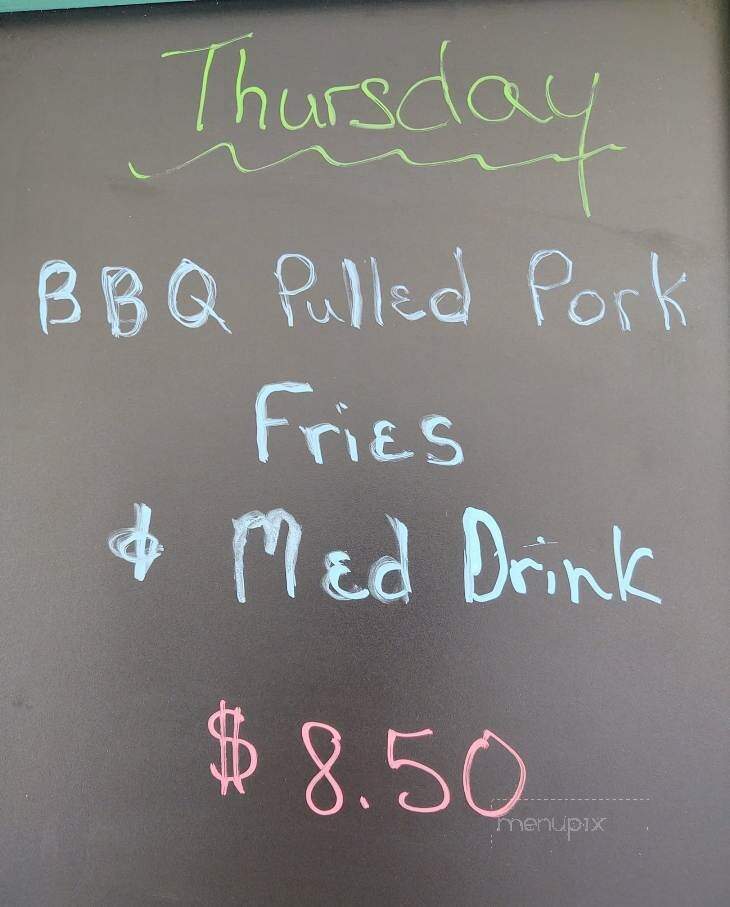 Thursday
BBQ Pulled Pork
Fries
& Med Drink
$8.50
menupix